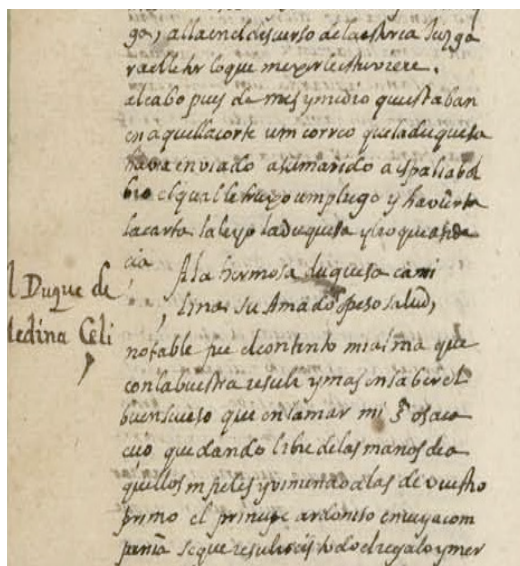 ga, alla en el discurso de la istoria juzga
ra el letor lo que mejor le estuviere.
al cabo pues de mes y medio que estaban
en aquella corte un correo que la duquesa
havia enviado a su marido a españa bol
bio el qual le truxo un pliego y havierta
la carta la leyo la duquesa y vio que ansi de
cia
A la hermosa duquesa cami
lina su Amado esposo salud,
l Duque de
ledina Celi
notable fue el contento mi alma que
con la buestra resuli y mas en saber el
buen suceso que en la mar mi Sª os acae
cio quedando libre de las manos de a
quellos infieles y viniendo a las de vuestro
primo el principe ardonio en cuya com
pania se que resulteis todo el regalo y mer